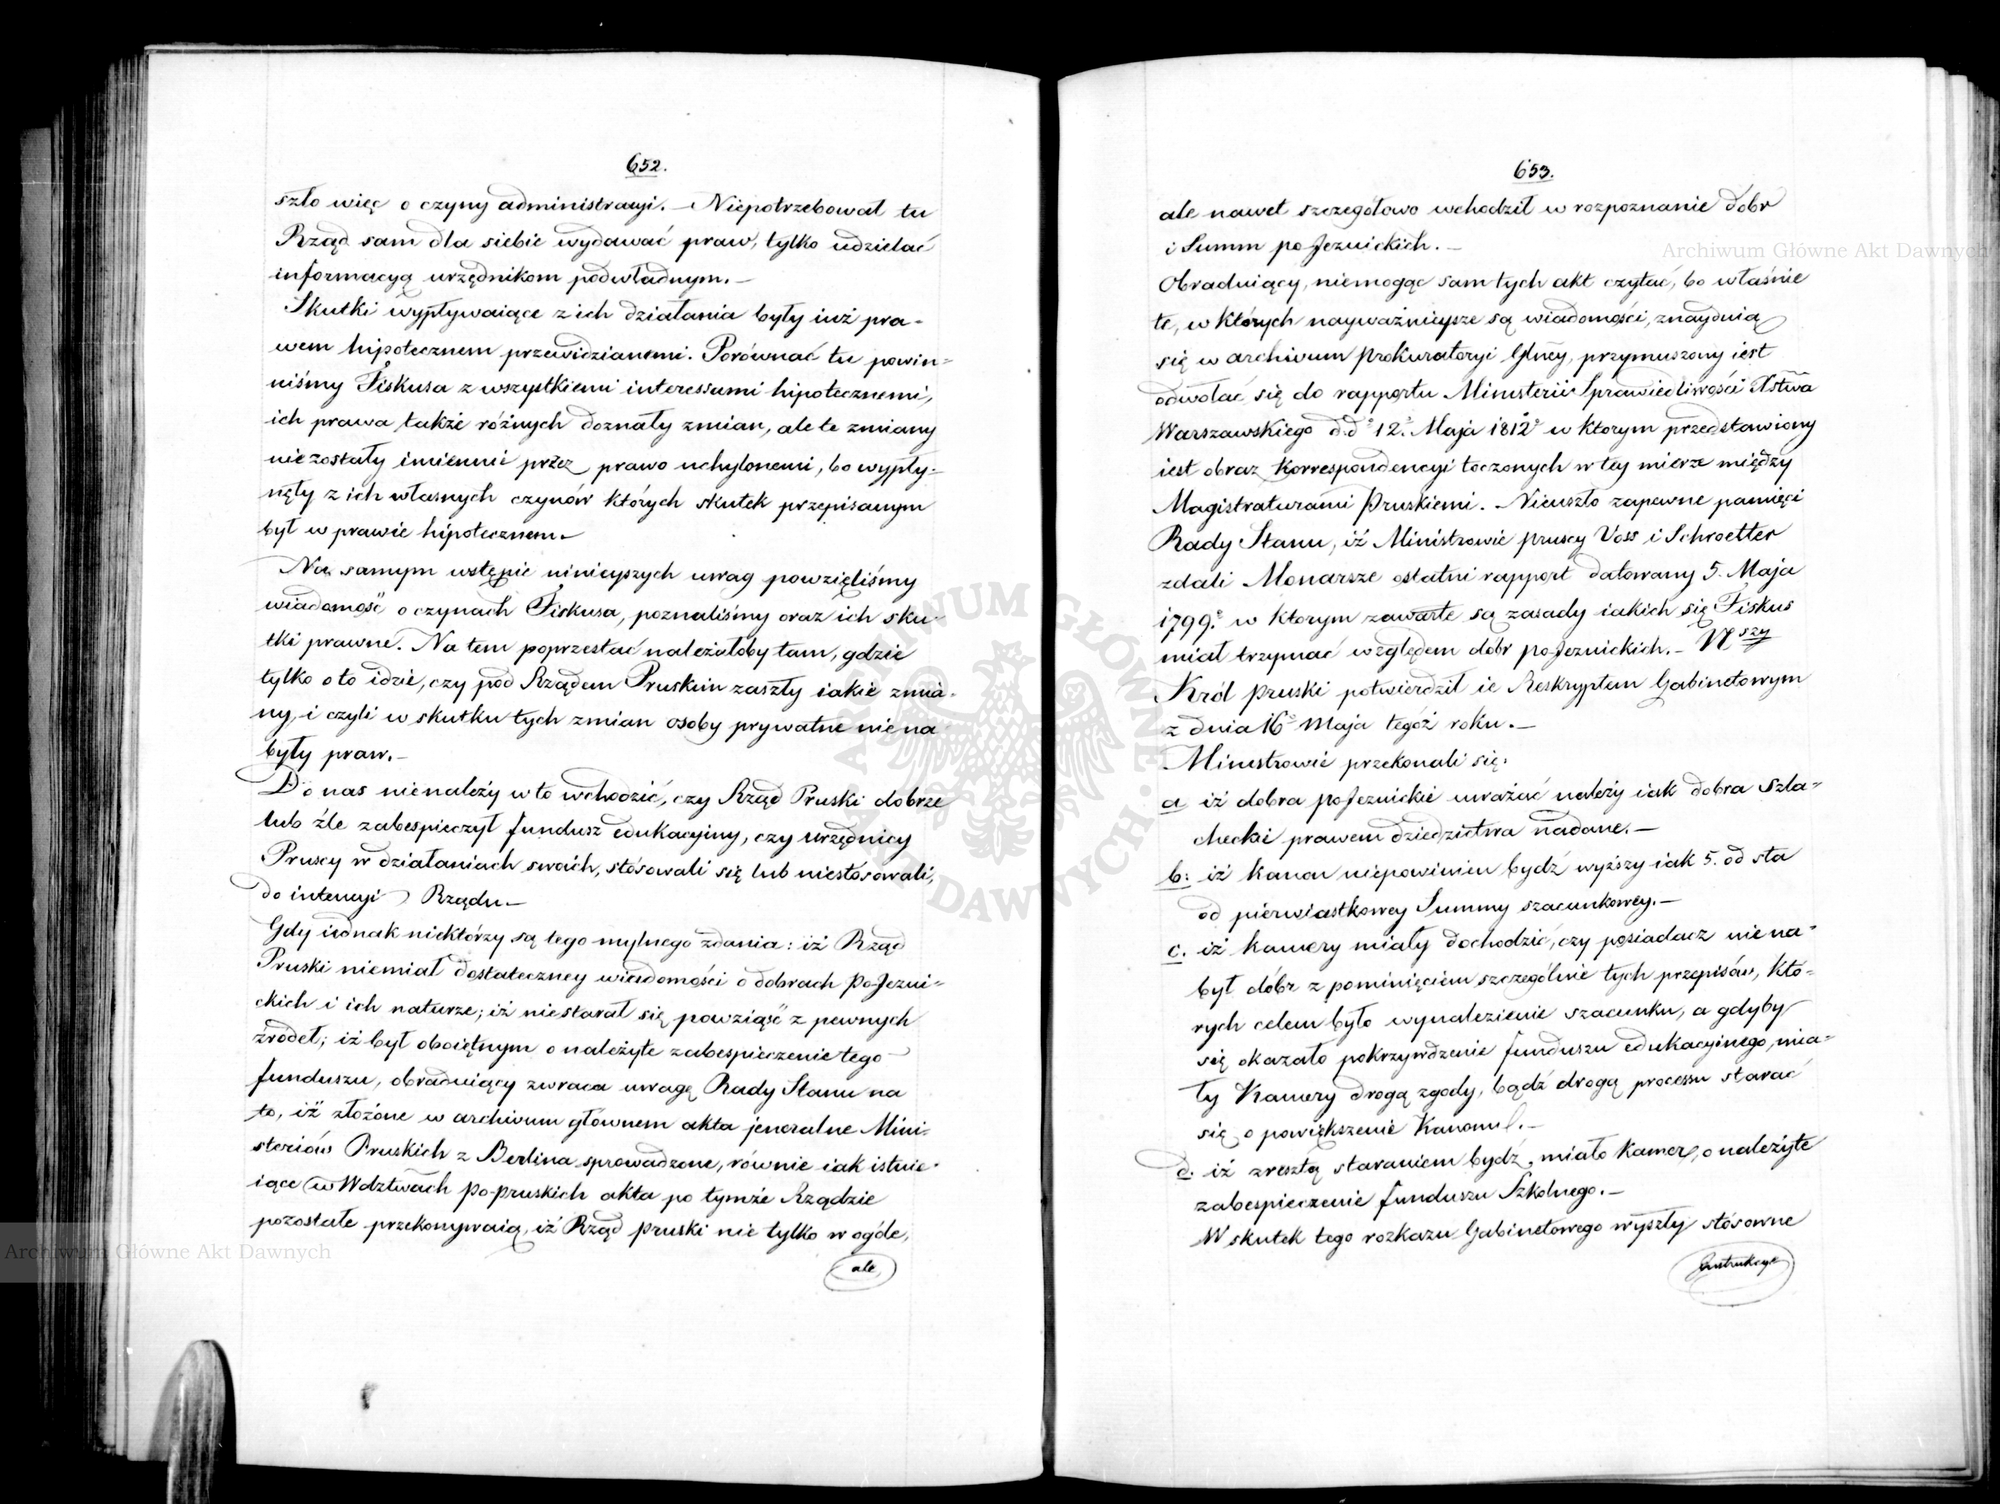 652.
szło więc o czyny administracyi. — Niepotrzebował tu
Rząd sam dla siebie wydawać praw, tylko udzielać
informacyą urzędnikom podwładnym. —
Skutki wypływaiące z ich działania były iuż pra-
wem hipotecznem przewidzianemi. Porównać tu powin-
niśmy Fiskusa z wszystkiemi interessumi hipotecznemi,
ich prawa także różnych doznały zmian, ale te zmiany
nie zostały imiennie przez prawo uchylonemi, bo wypły-
nęły z ich własnych czynów których skutek przepisanym
był w prawie hipotecznem. —
Na samym wstępie ninieyszych uwag powzięliśmy
wiadomość o czynach Fiskusa, poznaliśmy oraz ich sku-
tki prawne. Na tem poprzestać należałoby tam, gdzie
tylko o to idzie, czy pod Rządem Pruskim zaszły iakie zmia-
ny, i czyli w skutku tych zmian osoby prywatne nie na
były praw. —
Do nas nienależy w to wchodzić, czy Rząd Pruski dobrze
lub źle zabespieczył fundusz edukacyiny, czy urzędnicy
Pruscy w działaniach swoich, stósowali się lub niestósowali,
do intencyi Rządu. —
Gdy iednak niektórzy są tego mylnego zdania: iż Rząd
Pruski niemiał dostateczney wiadomości o dobrach po-Jezui-
ckich i ich naturze; iż niestarał się powziąść z pewnych
źrodeł; iż był oboiętnym o należyte zabespieczenie tego
funduszu, obraduiący zwraca uwagę Rady Stanu na
to, iż złożone w archivum głównem akta jeneralne Mini-
steriów Pruskich z Berlina sprowadzone, równie iak istnie-
iące w Wdztwach po-pruskich akta po tymże Rządzie
pozostałe przekonywaią, iż Rząd pruski nie tylko w ogóle,
ale
653.
ale nawet szczegółowo wchodził w rozpoznanie dobr
i Summ po Jezuickich. —
Obraduiący, niemogąc sam tych akt czytać, bo właśnie
te, w których nayważnieysze są wiadomości, znayduią
się w archivum Prokuratoryi Głney, przymuszony iest
odwołać się do rapportu Ministerii Sprawiedliwości Xstwa
Warszawskiego d.d. 12. Maja 1812 w ktorym przedstawiony
iest obraz korrespondencyi toczonych w tey mierze między
Magistraturami Pruskiemi. — Nieuszło zapewne pamięci
Rady Stanu, iż Ministrowie pruscy Voss i Schroetter
zdali Monarsze ostatni rapport datowany 5. Maja
1799. w ktorym zawarte są zasady iakich się Fiskus
miał trzymać względem dobr po Jezuickich. — Nszy
Król pruski potwierdził ie Reskryptem Gabinetowym
z dnia 16 Maja tegóż roku. —
Ministrowie przekonali się.
a iż dobra po Jezuickie uważać należy iak dobra szla-
checkie prawem dziedzictwa nadane. —
b: iż kanon niepowinien bydź wyższy iak 5. od sta
od pierwiastkowey Summy szacunkowey. —
c. iż Kamery miały dochodzić, czy posiadacz nie na-
był dóbr z pominięciem szczególnie tych przepisów, któ-
rych celem było wynalezienie szacunku, a gdyby
się okazało pokrzywdzenie funduszu edukacyinego, mia-
ły Kamery drogą zgody, bądź drogą processu starać
się o powiększenie Kanonu. —
d. iż zresztą staraniem bydź miało Kamer, o należyte
zabespieczenie funduszu Szkolnego. —
W skutek tego rozkazu Gabinetowego wyszły stósowne
Instrukcye
Archiwum Główne Akt Dawnych
Archiwum Główne Akt Dawnych
ARCHIWUM GŁÓWNE AKT DAWNYCH